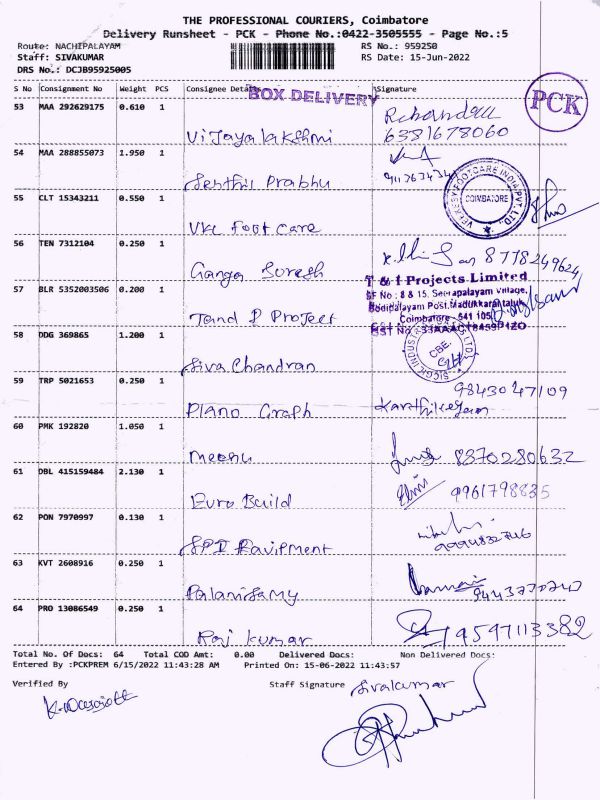 THE PROFESSIONAL COURIERS, Coimbatore
Delivery Runsheet - PCK - Phone No.:0422-3505555 - Page No.:5
Route: NACHIPALAYAM RS No.: 959250
Staff: SIVAKUMAR RS Date: 15-Jun-2022
DRS No.: DCJB95925005
S No Consignment No Weight PCS Consignee Details Signature
BOX DELIVERY
PCK
53 MAA 292629175 0.610 1
Vijayalakshmi 6381678060
54 MAA 288855073 1.950 1
Senthil Prabhu
VELKESY FOOTCARE INDIA PVT. LTD. COIMBATORE
55 CLT 15343211 0.550 1
VKC Foot care
56 TEN 7312104 0.250 1
Ganga Suresh 8778249624
T & I Projects Limited
SF No : 8 & 15, Seerapalayam Village,
57 BLR 5352003506 0.200 1
Bodipalayam Post, Madukkarai taluk,
Coimbatore - 641 105
T and I Project
58 DDG 369865 1.200 1
CBE.
Siva Chandran
59 TRP 5021653 0.250 1
9843047109
Plano Graph Karthikeyan
60 PMK 192820 1.050 1
Meenu 8370280632
61 DBL 415159484 2.130 1
Euro Build 9961798835
62 PON 7970997 0.130 1
9994832746
SPI Equipment
63 KVT 2608916 0.250 1
Palanisamy 9443770747
64 PRO 13086549 0.250 1
Raj kumar 9597113382
Total No. Of Docs: 64 Total COD Amt: 0.00 Delivered Docs: Non Delivered Docs:
Entered By :PCKPREM 6/15/2022 11:43:28 AM Printed On: 15-06-2022 11:43:57
Verified By Staff Signature Sivakumar